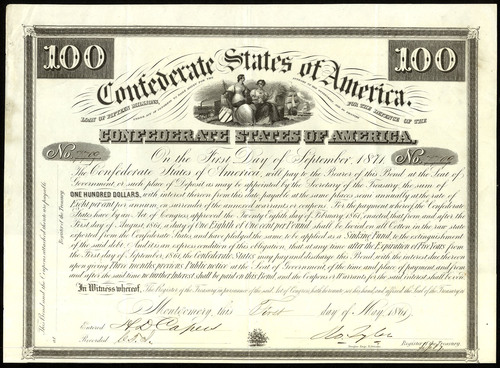 100
Confederate States of America.
100
LOAN OF FIFTEEN MILLIONS,
FOR THE DEFENCE OF THE
CONFEDERATE STATES OF AMERICA.
No.
No.
On the First Day of September, 1871
The Confederate States of America, will pay to the Bearer of this Bond at the Seat of
Government, or such place of Deposit as may be appointed by the Secretary of the Treasury, the sum of
ONE HUNDRED DOLLARS, with interest thereon from this date, payable at the same places, semi-annually at the rate of
Eight per cent per annum, on surrender of the annexed warrants or coupons. For the payment whereof the Confederate
States have by an Act of Congress, approved the Twenty Eighth day of February, 1861, enacted, that from and after the
First day of August, 1861, a duty of one Eighth of One cent per Pound, shall be levied on all Cotton in the raw state
exported from the Confederate States, and have pledged the same to be applied as a Sinking Fund to the extinguishment
of the said debt. And it is an express condition of this obligation, that at any time after the Expiration of Five Years from
the First day of September, 1861, the Confederate States may pay and discharge this Bond with the interest due thereon
upon giving Three months previous Public notice at the Seat of Government, of the time and place of payment, and from
and after the said time no further Interest shall be paid on this Bond
In Witness whereof, The Register of the Treasury in pursuance of the said Act of Congress, hath hereunto set his hand, and affixed the Seal of the Treasury at
Montgomery, this First day of May 1861
Entered A D Capers
Recorded
Register of the Treasury
Register of the Treasury.